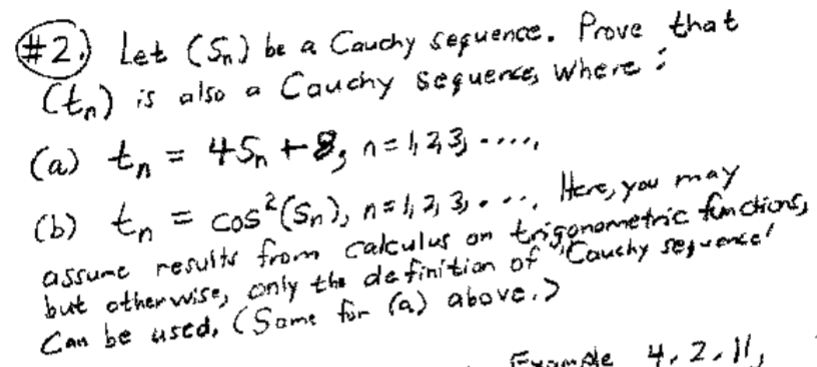 #2.) Let (Sn) be a Cauchy sequence. Prove that
(tn) is also a Cauchy sequence, where:
(a) tn = 4Sn + 8, n=1,2,3,....,
(b) tn = cos²(Sn), n=1,2,3,...,. Here, you may
assume results from calculus on trigonometric functions,
but otherwise, only the definition of "Cauchy sequence"
can be used. (Same for (a) above.)
Example 4.2.11,